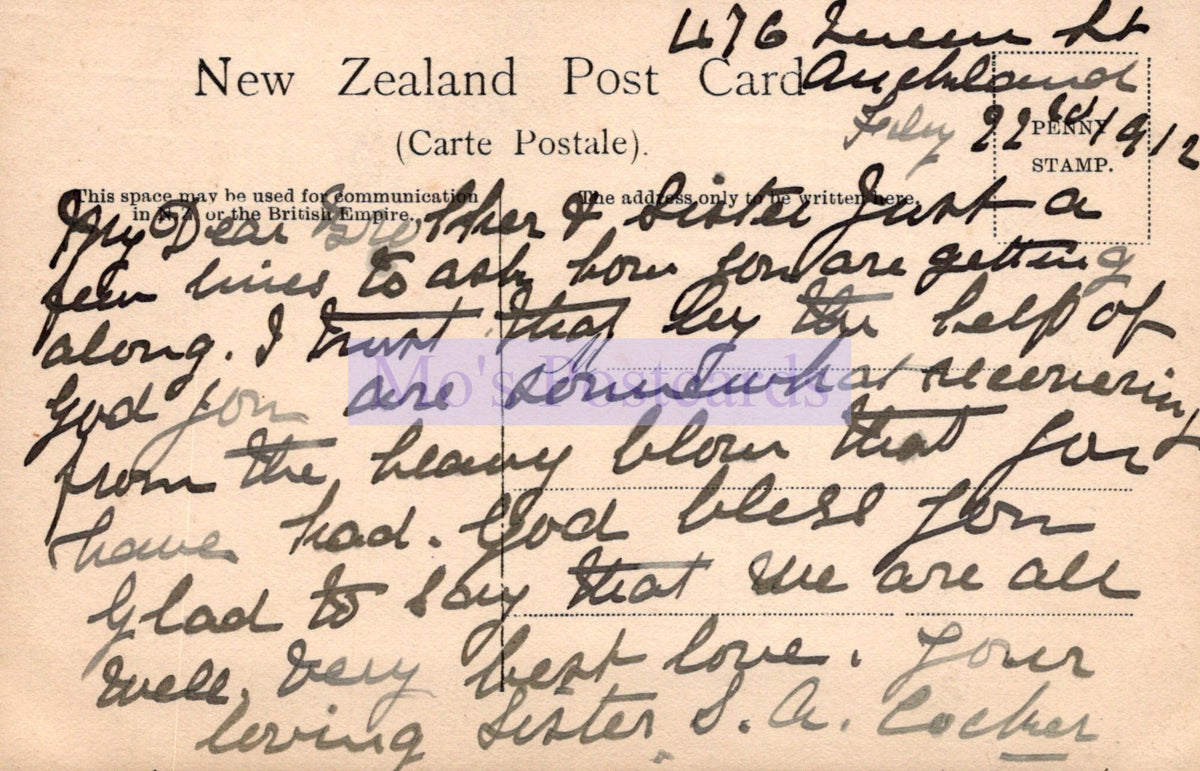 476 Queen St
Auckland
Feby 22nd 1912
New Zealand Post Card
(Carte Postale).
PENNY
STAMP.
This space may be used for communication
in N.Z. or the British Empire.
The address only to be written here.
My Dear Brother & Sister Just a
few lines to ask how you are getting
along. I trust that by the help of
God you are somewhat recovering
from the heavy blow that you
have had. God bless you
Glad to say that we are all
well. Very best love. Your
loving Sister S. A. Cocker
Mo's Postcards